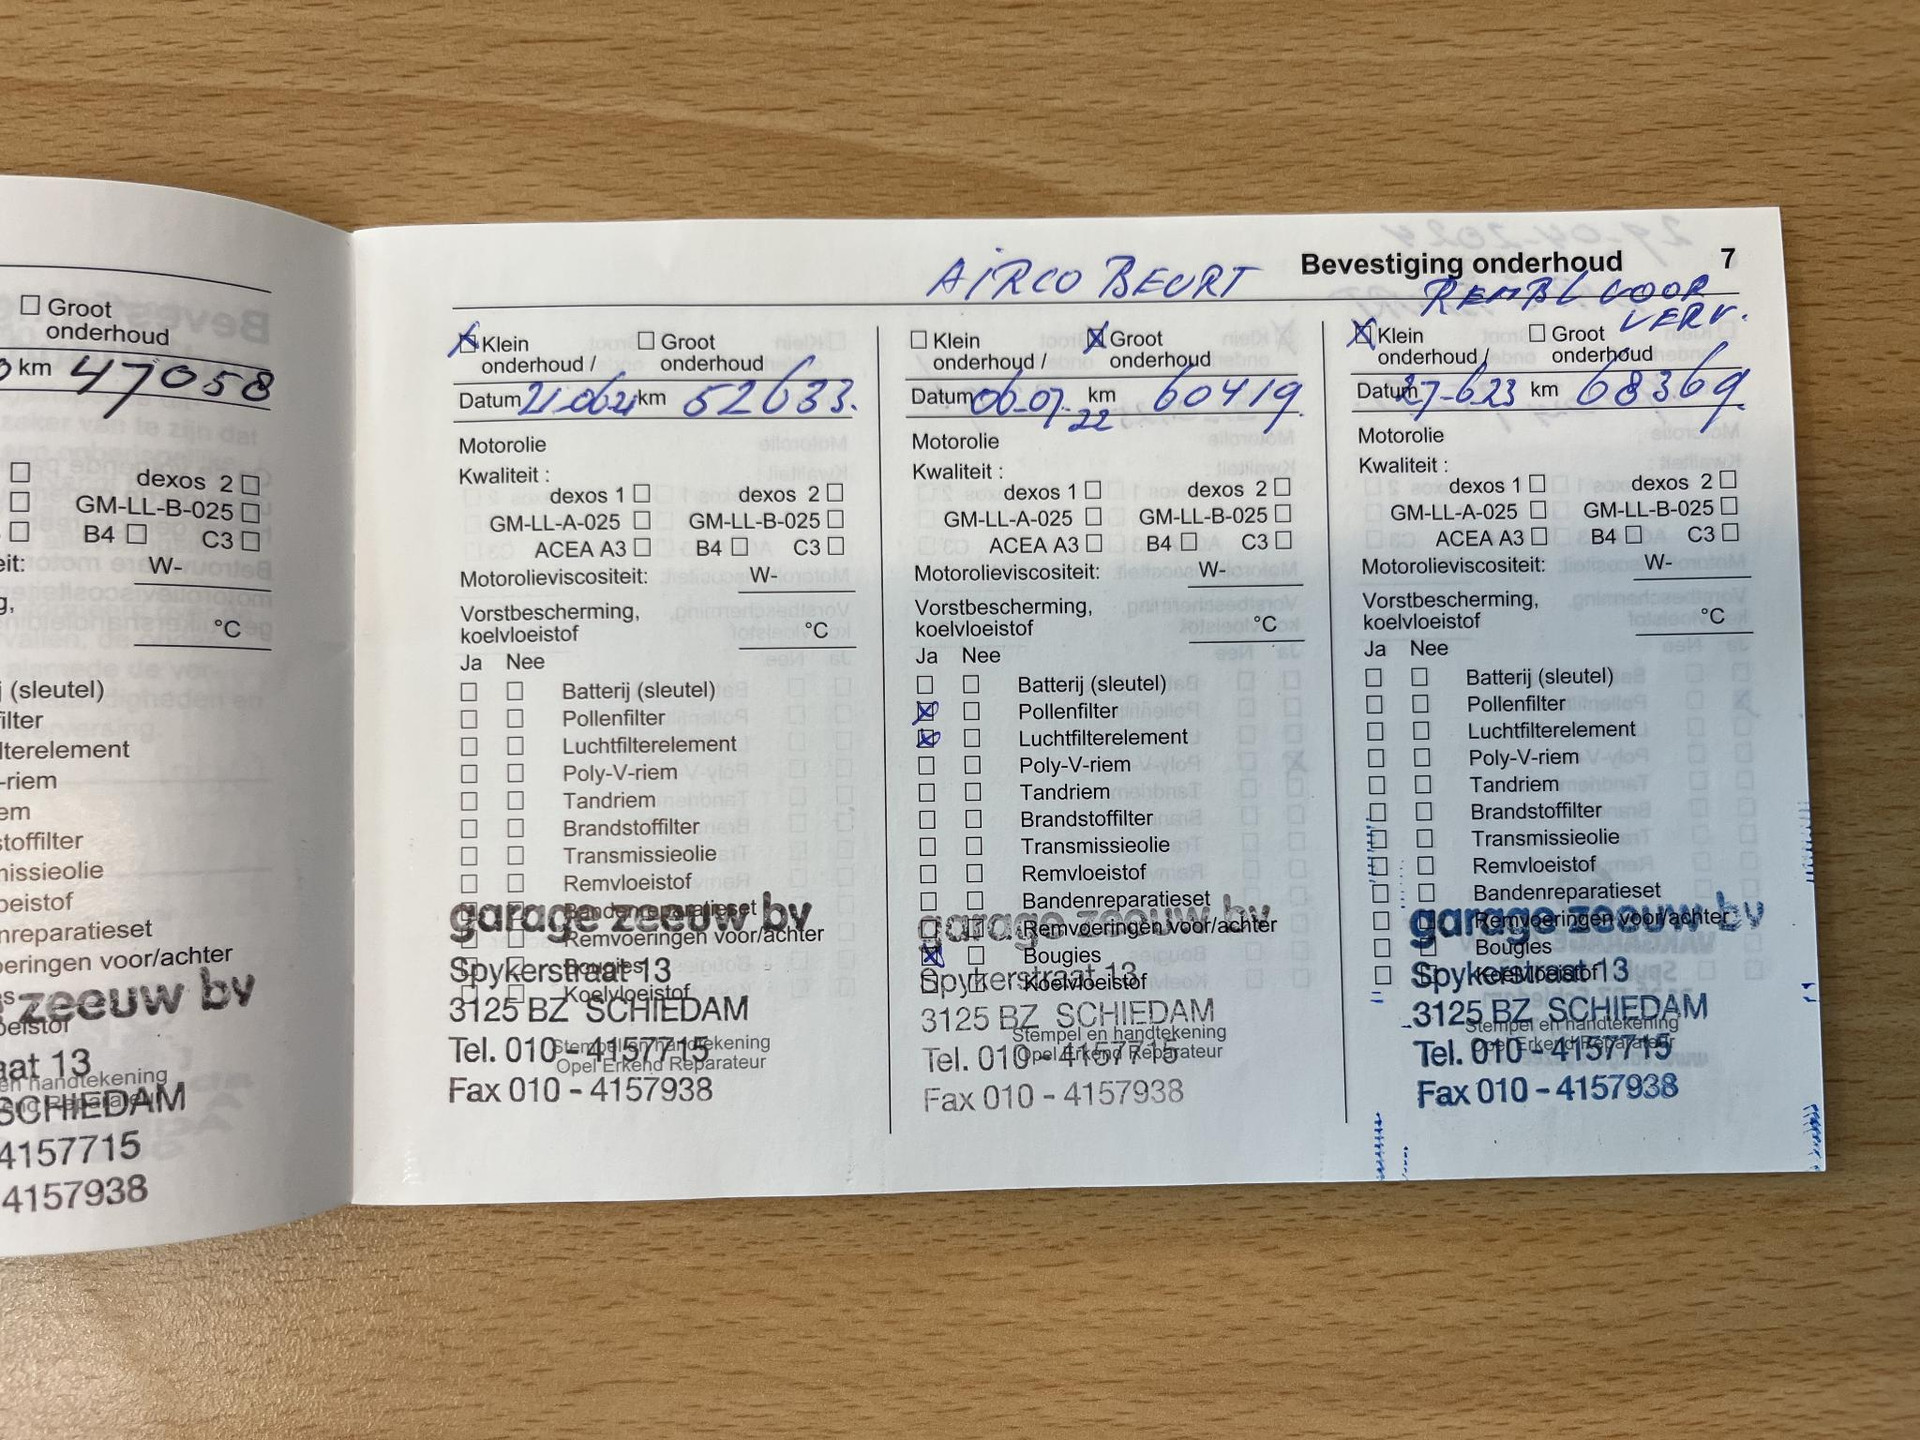 Groot
onderhoud
km 47058
dexos 2
GM-LL-B-025
B4 C3
W-
°C
(sleutel)
zeeuw bv
13
SCHIEDAM
4157715
4157938
AIRCO BEURT
Bevestiging onderhoud 7
REMBL VOOR
VERV.
Klein Groot
onderhoud / onderhoud
Datum 21-06-21 km 52633.
Motorolie
Kwaliteit :
dexos 1 dexos 2
GM-LL-A-025 GM-LL-B-025
ACEA A3 B4 C3
Motorolieviscositeit: W-
Vorstbescherming,
koelvloeistof °C
Ja Nee
Batterij (sleutel)
Pollenfilter
Luchtfilterelement
Poly-V-riem
Tandriem
Brandstoffilter
Transmissieolie
Remvloeistof
Bandenreparatieset
Remvoeringen voor/achter
Bougies
Koelvloeistof
Stempel en handtekening
Opel Erkend Reparateur
garage zeeuw bv
Spykerstraat 13
3125 BZ SCHIEDAM
Tel. 010 - 4157715
Fax 010 - 4157938
Klein Groot
onderhoud / onderhoud
Datum 06-07-22 km 60419.
Motorolie
Kwaliteit :
dexos 1 dexos 2
GM-LL-A-025 GM-LL-B-025
ACEA A3 B4 C3
Motorolieviscositeit: W-
Vorstbescherming,
koelvloeistof °C
Ja Nee
Batterij (sleutel)
Pollenfilter
Luchtfilterelement
Poly-V-riem
Tandriem
Brandstoffilter
Transmissieolie
Remvloeistof
Bandenreparatieset
Remvoeringen voor/achter
Bougies
Koelvloeistof
Stempel en handtekening
Opel Erkend Reparateur
garage zeeuw bv
Spykerstraat 13
3125 BZ SCHIEDAM
Tel. 010 - 4157715
Fax 010 - 4157938
Klein Groot
onderhoud / onderhoud
Datum 27-6-23 km 68369.
Motorolie
Kwaliteit :
dexos 1 dexos 2
GM-LL-A-025 GM-LL-B-025
ACEA A3 B4 C3
Motorolieviscositeit: W-
Vorstbescherming,
koelvloeistof °C
Ja Nee
Batterij (sleutel)
Pollenfilter
Luchtfilterelement
Poly-V-riem
Tandriem
Brandstoffilter
Transmissieolie
Remvloeistof
Bandenreparatieset
Remvoeringen voor/achter
Bougies
Koelvloeistof
Stempel en handtekening
Opel Erkend Reparateur
garage zeeuw bv
Spykerstraat 13
3125 BZ SCHIEDAM
Tel. 010 - 4157715
Fax 010 - 4157938